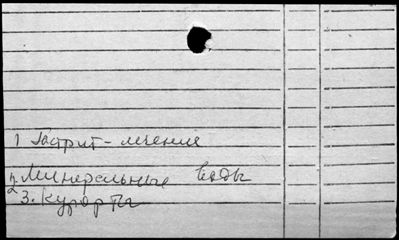 1 Гастрит - лечение
2. Минеральные воды
3. Курорты